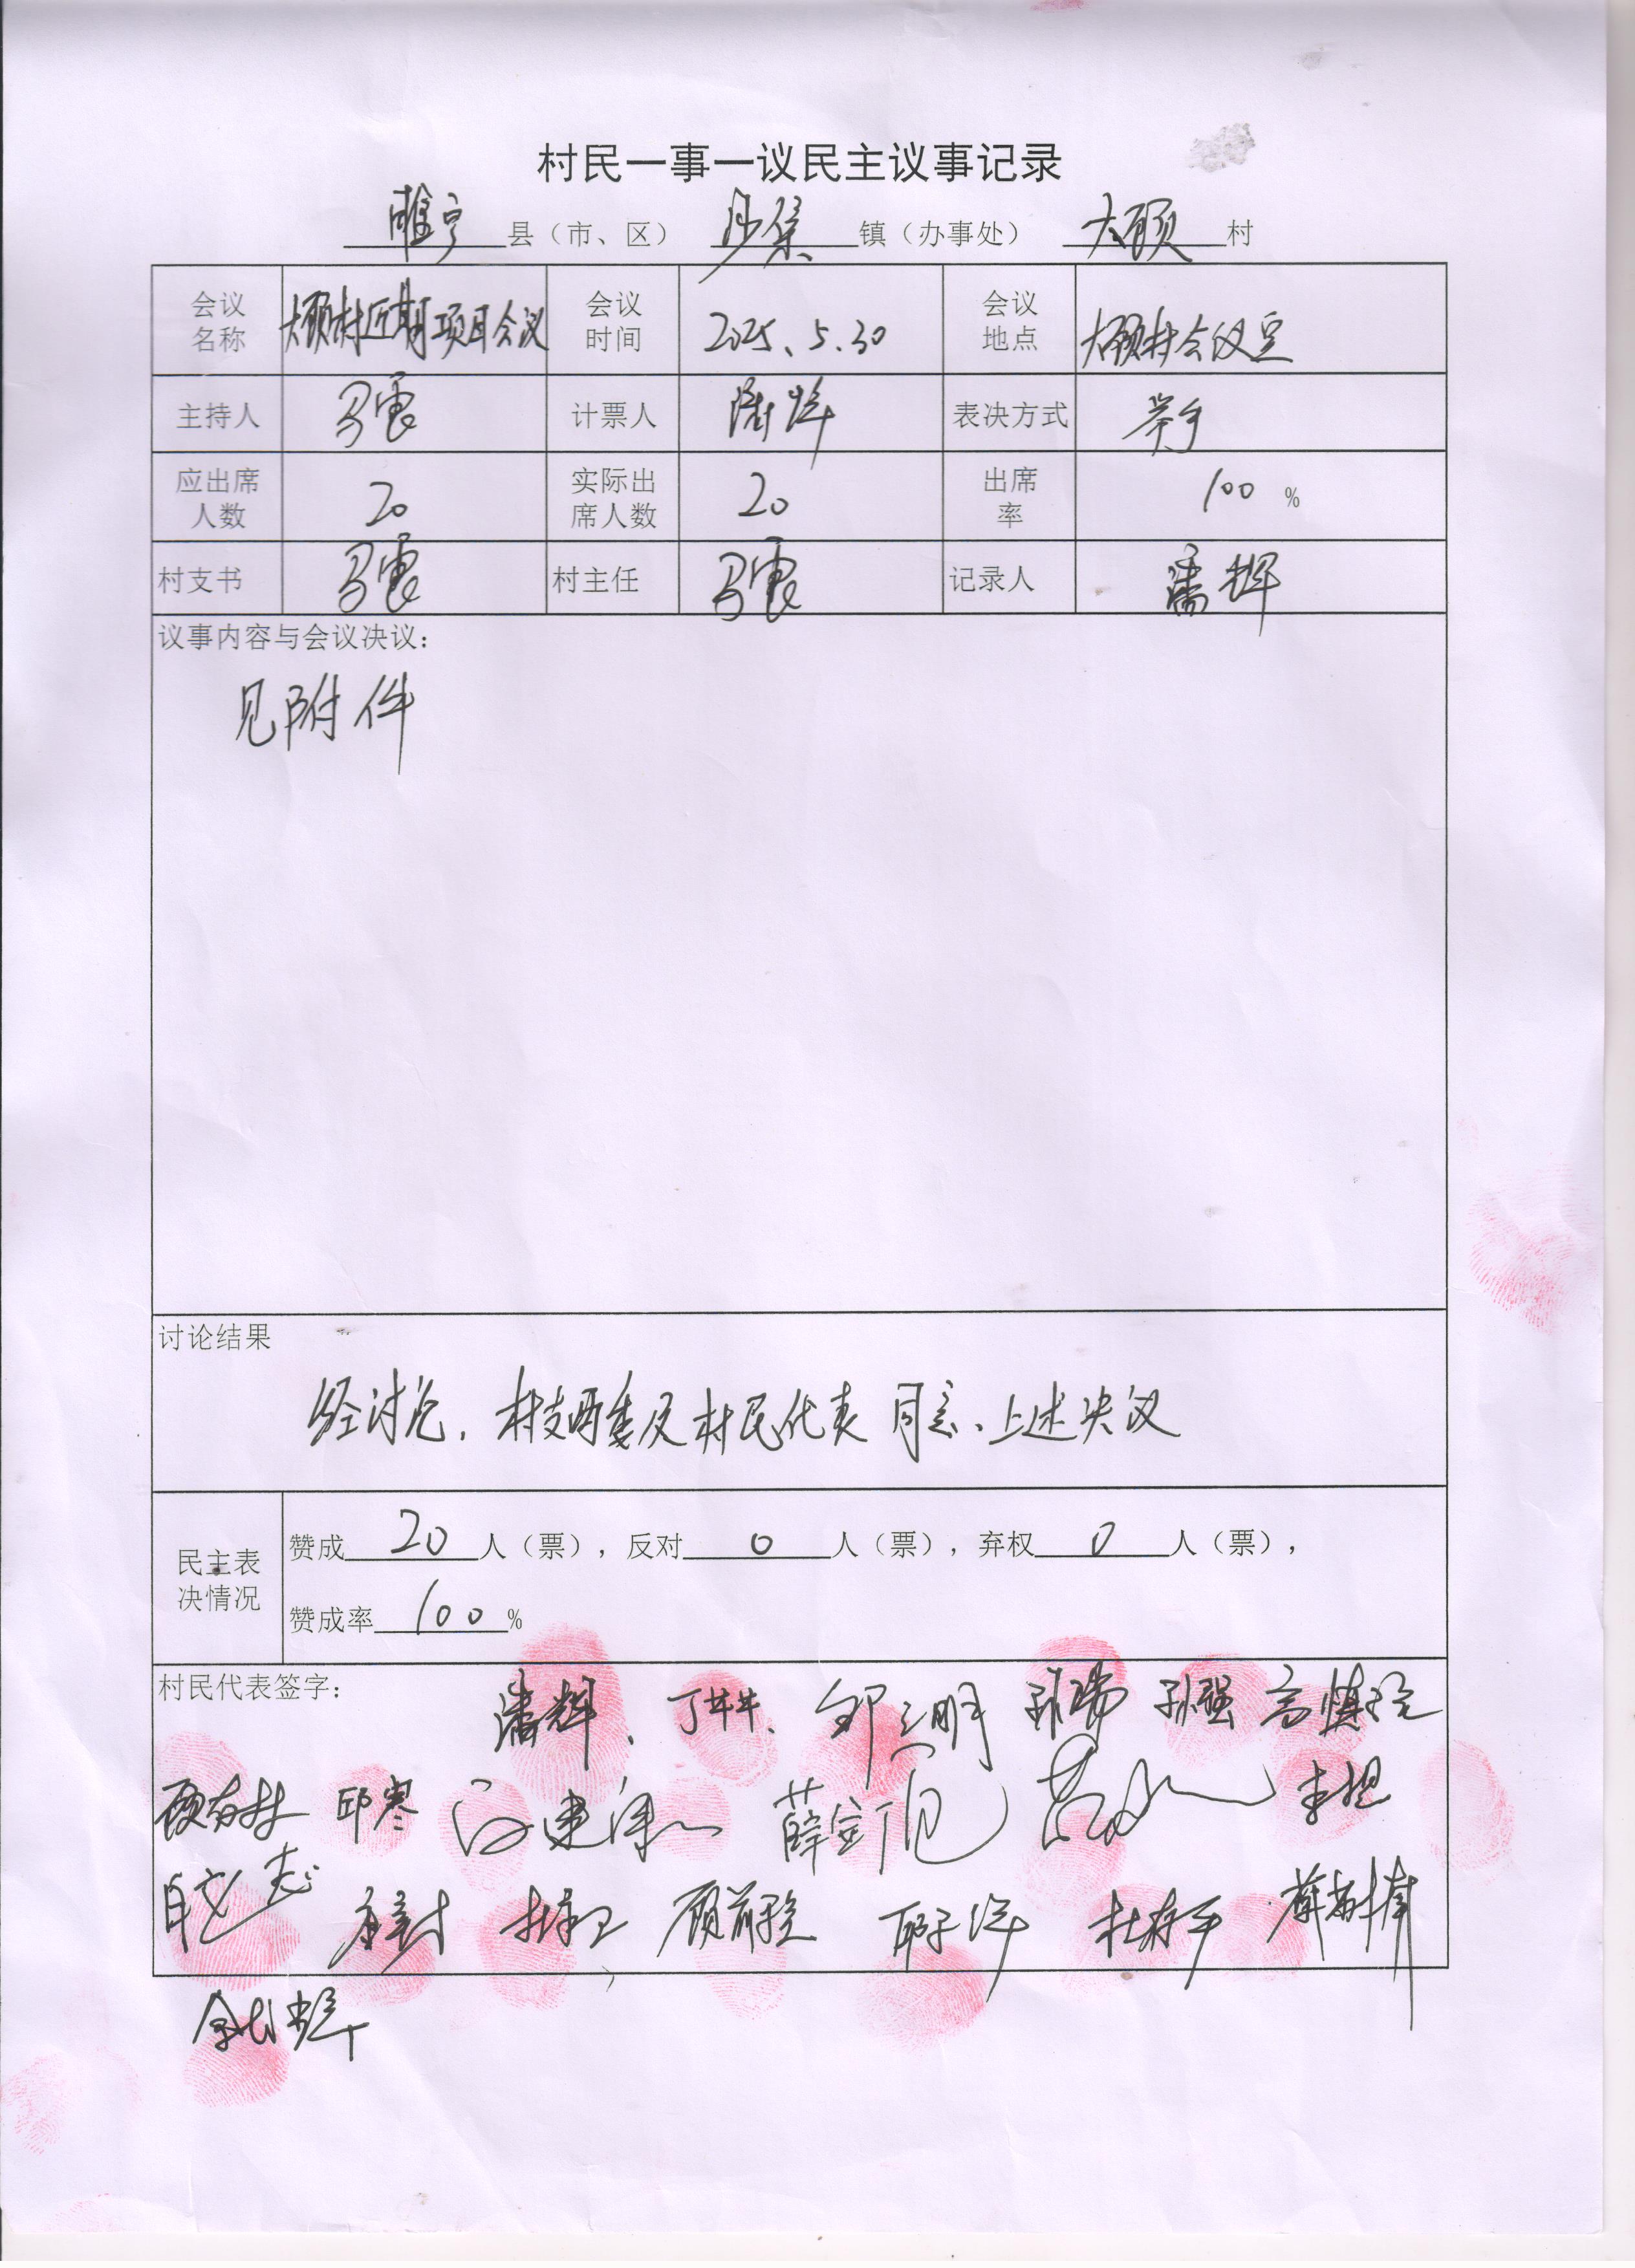 村民一事一议民主议事记录
睢宁县（市、区） 沙集镇（办事处） 大顾村
会议名称 大顾村近期项目会议 会议时间 2025、5.30 会议地点 大顾村会议室
主持人 马震 计票人 表决方式 举手
应出席人数 20 实际出席人数 20 出席率 100 %
村支书 马震 村主任 马震 记录人 潘辉
议事内容与会议决议：
见附件
讨论结果
经讨论，村支两委及村民代表同意、上述决议
民主表决情况 赞成20人（票），反对0人（票），弃权0人（票），
赞成率100%
村民代表签字：
潘辉、丁牛牛、邹三明 孙瑞 孙强
邱寒
顾前程 杜存平